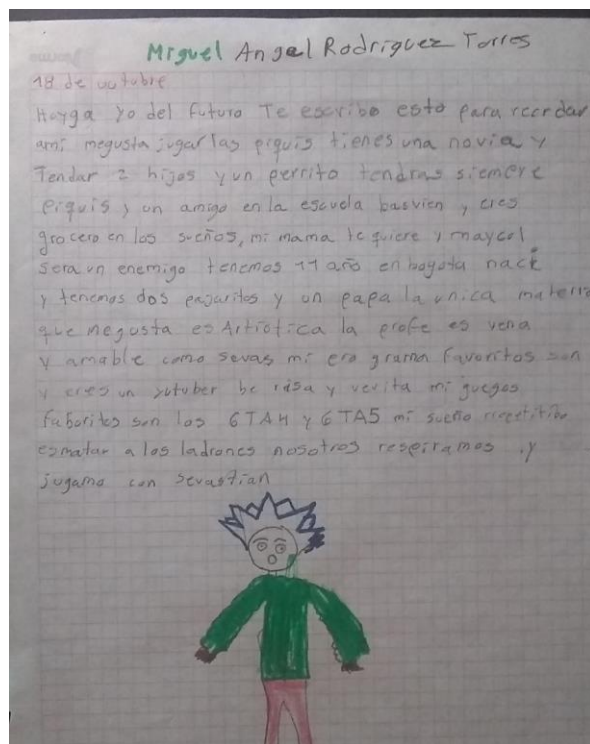 Miguel Angel Rodriguez Torres
18 de octubre
Hoyga yo del futuro Te escribo esto para recordar
ami megusta jugar las piquis tienes una novia y
Tendar 2 hijos y un perrito tendras siemere
piquis, un amigo en la escuela basvien, eres
grocero en los sueños, mi mama te quiere y maycol
sera un enemigo tenemos 11 año en bogota naci
y tenemos dos pajaritos y un papa la unica materia
que megusta es Artiotica la profe es vena
y amable como sevas mi favoritos son
y eres un yutuber be risa y verita mi guegos
faboritos son los GTA4 y GTA5 mi sueño
esmatar a los ladrones nosotros respiramos y
jugamo con sevastian